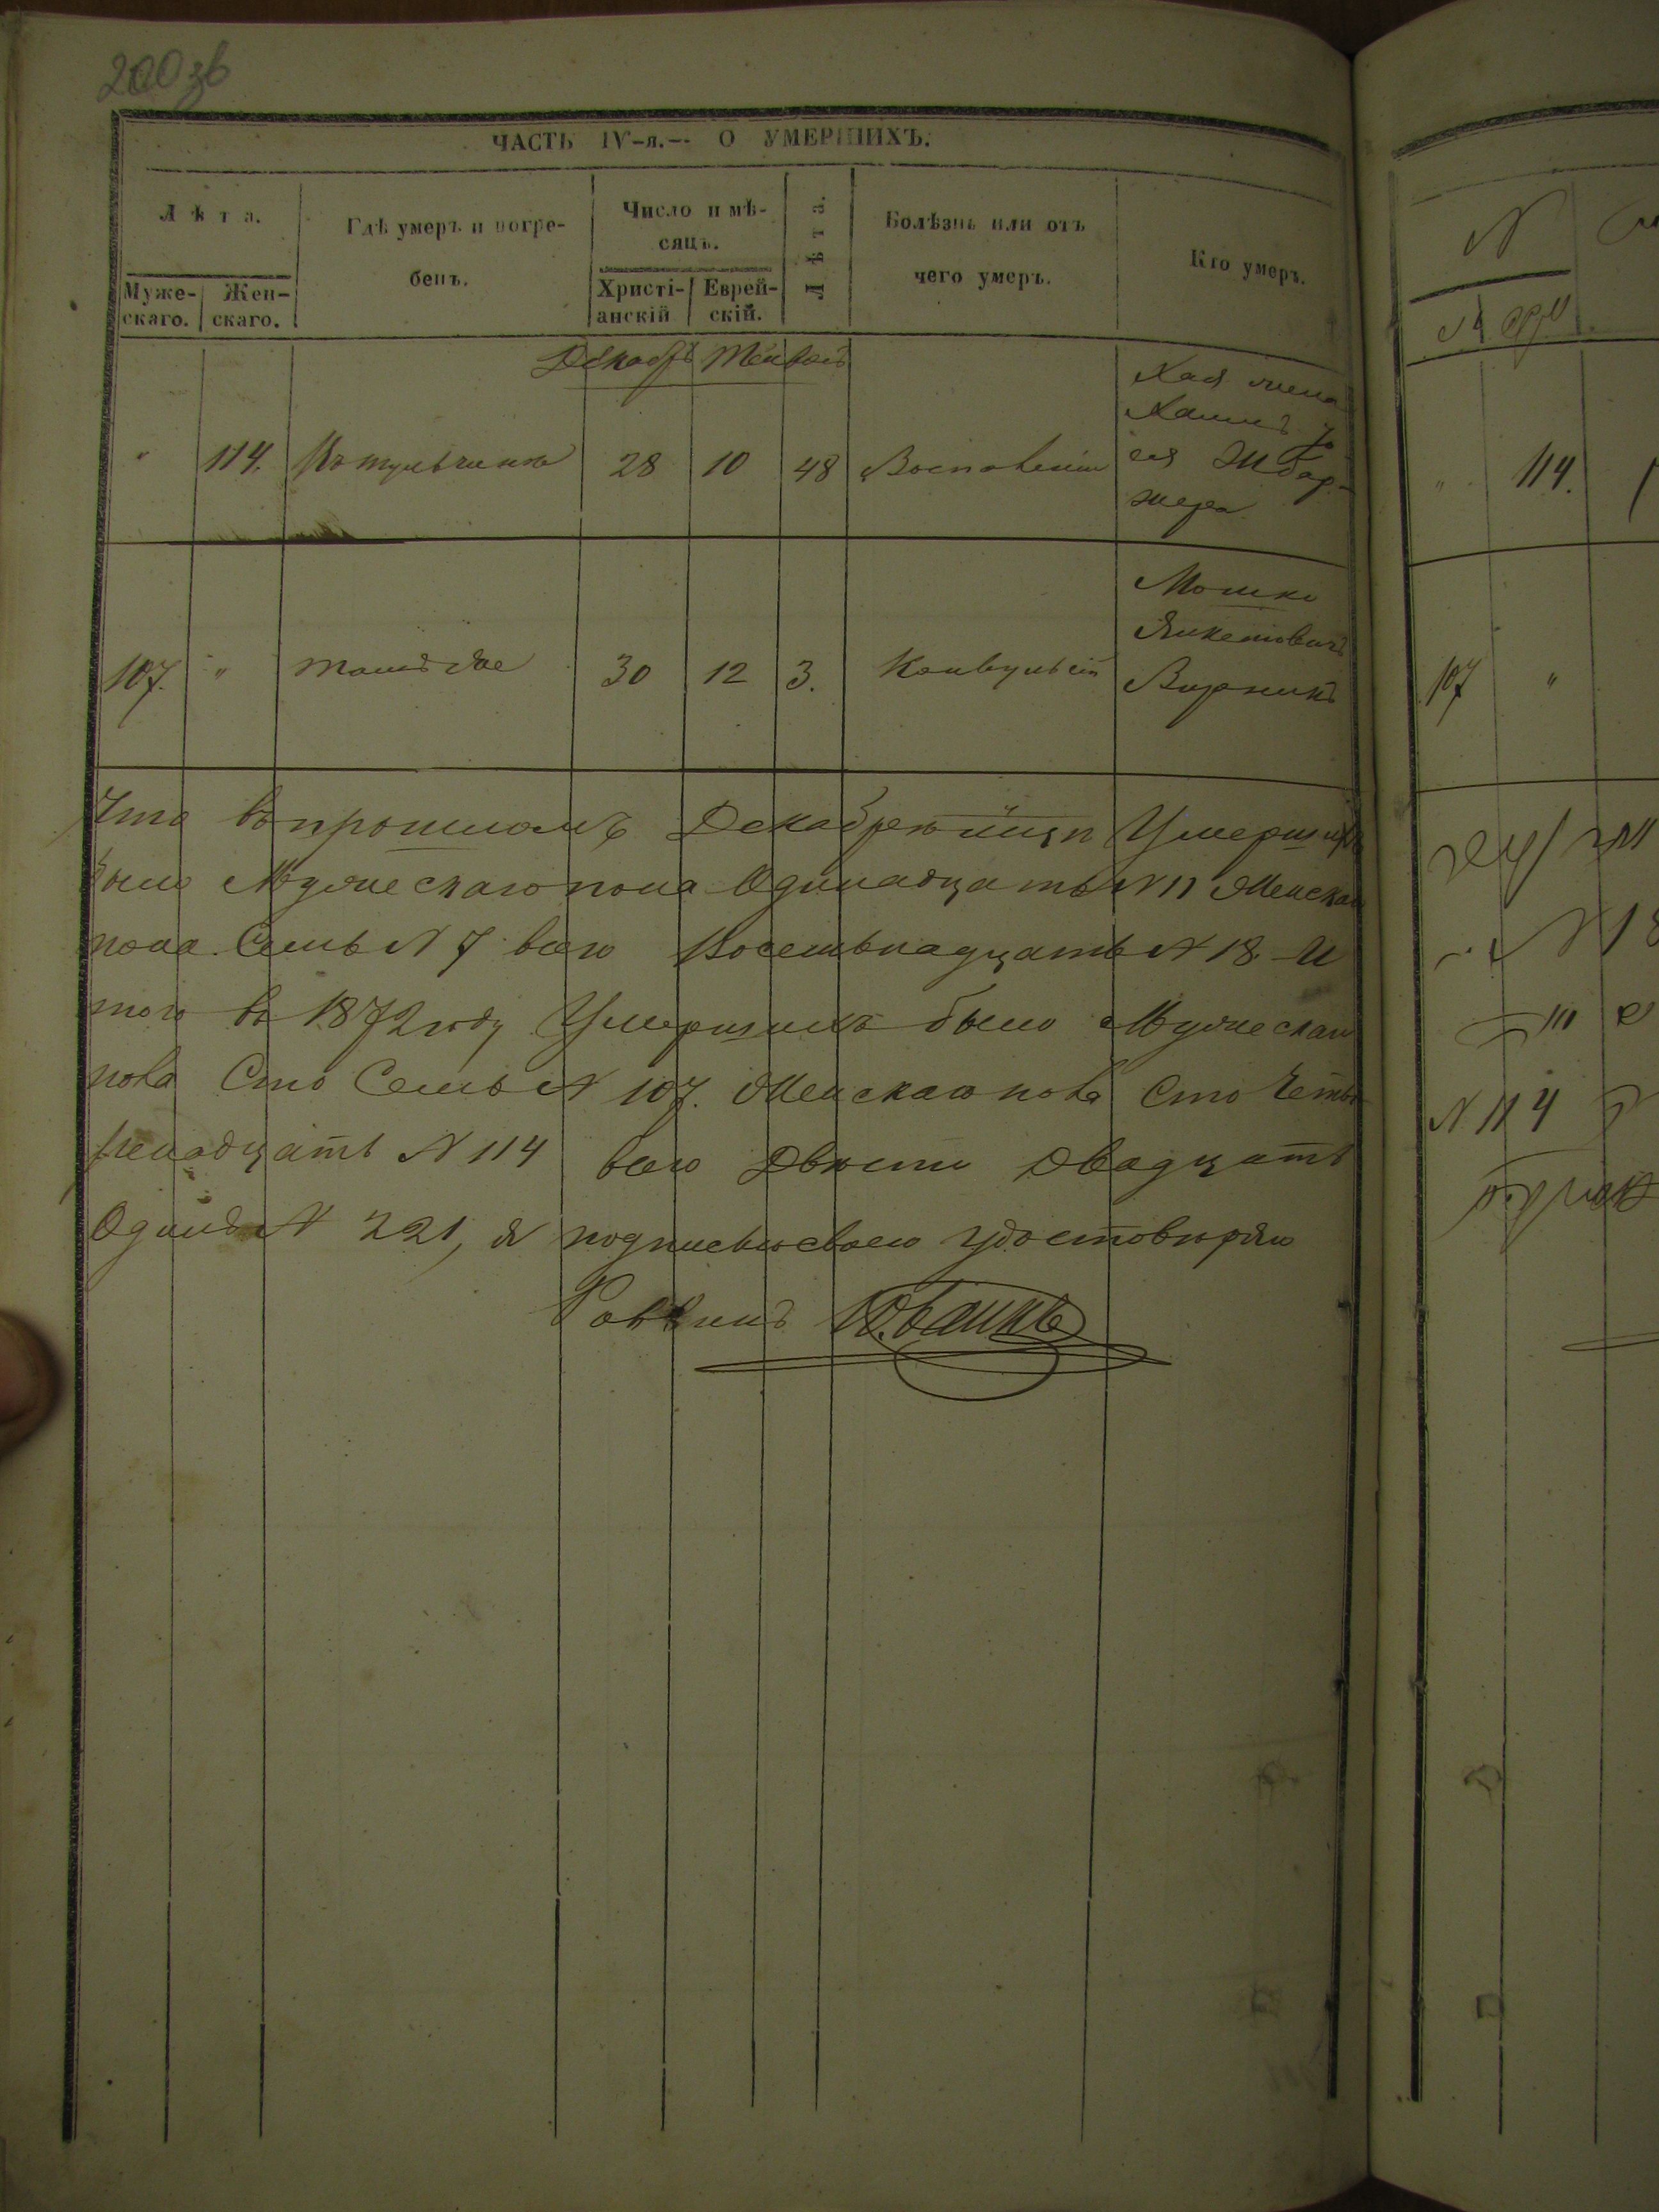 200 зв
ЧАСТЬ IV-я.—- О УМЕРШИХЪ.
Лѣта.
Муже-
скаго.
Жен-
скаго.
Гдѣ умеръ и погре-
бенъ.
Число и мѣ-
сяцъ.
Христі-
анскій
Еврей-
скій.
Лѣта.
Болѣзнь или отъ
чего умеръ.
Кто умеръ.
Декабрь
"
114.
28
10
48
Хая жена
107.
"
тамъ же
30
12
3.
Конвульсіи
Мошко
Янкелювичъ
Вирникъ
Что въ прошломъ Декабрѣ м-цѣ Умершихъ
было Мужескаго пола Одинадцать N 11 Женскаго
пола Семь N 7 всего Восемьнадцать N 18 И
того въ 1872 году Умершихъ было Мужескаго
пола Сто Семь N 107. Женскаго пола Сто Четы
ренадцать N 114 всего Двѣсти Двадцать
Одинъ N 221, я подписью своею удостовѣряю
Раввинъ
N
"
114.
107
"
N 18
N 114